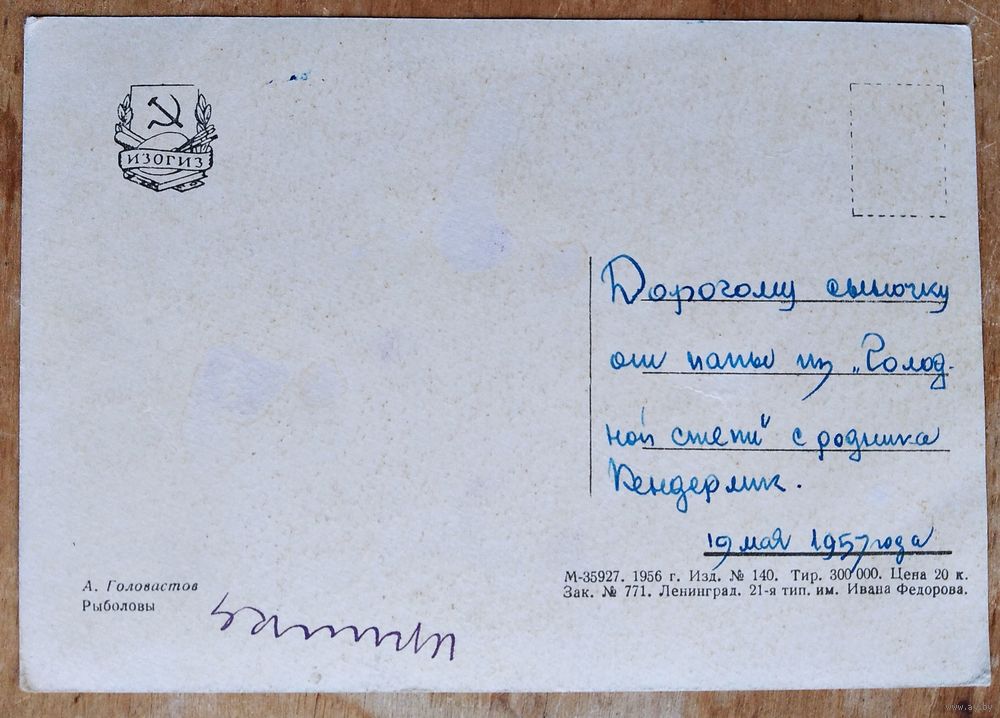 ИЗОГИЗ
Дорогому сыночку
от папы из „Голод-
ной степи" с родника
Кендерлик.
19 мая 1957 года
А. Головастов
Рыболовы
М-35927. 1956 г. Изд. № 140. Тир. 300 000. Цена 20 к.
Зак. № 771. Ленинград. 21-я тип. им. Ивана Федорова.
www.ay.by